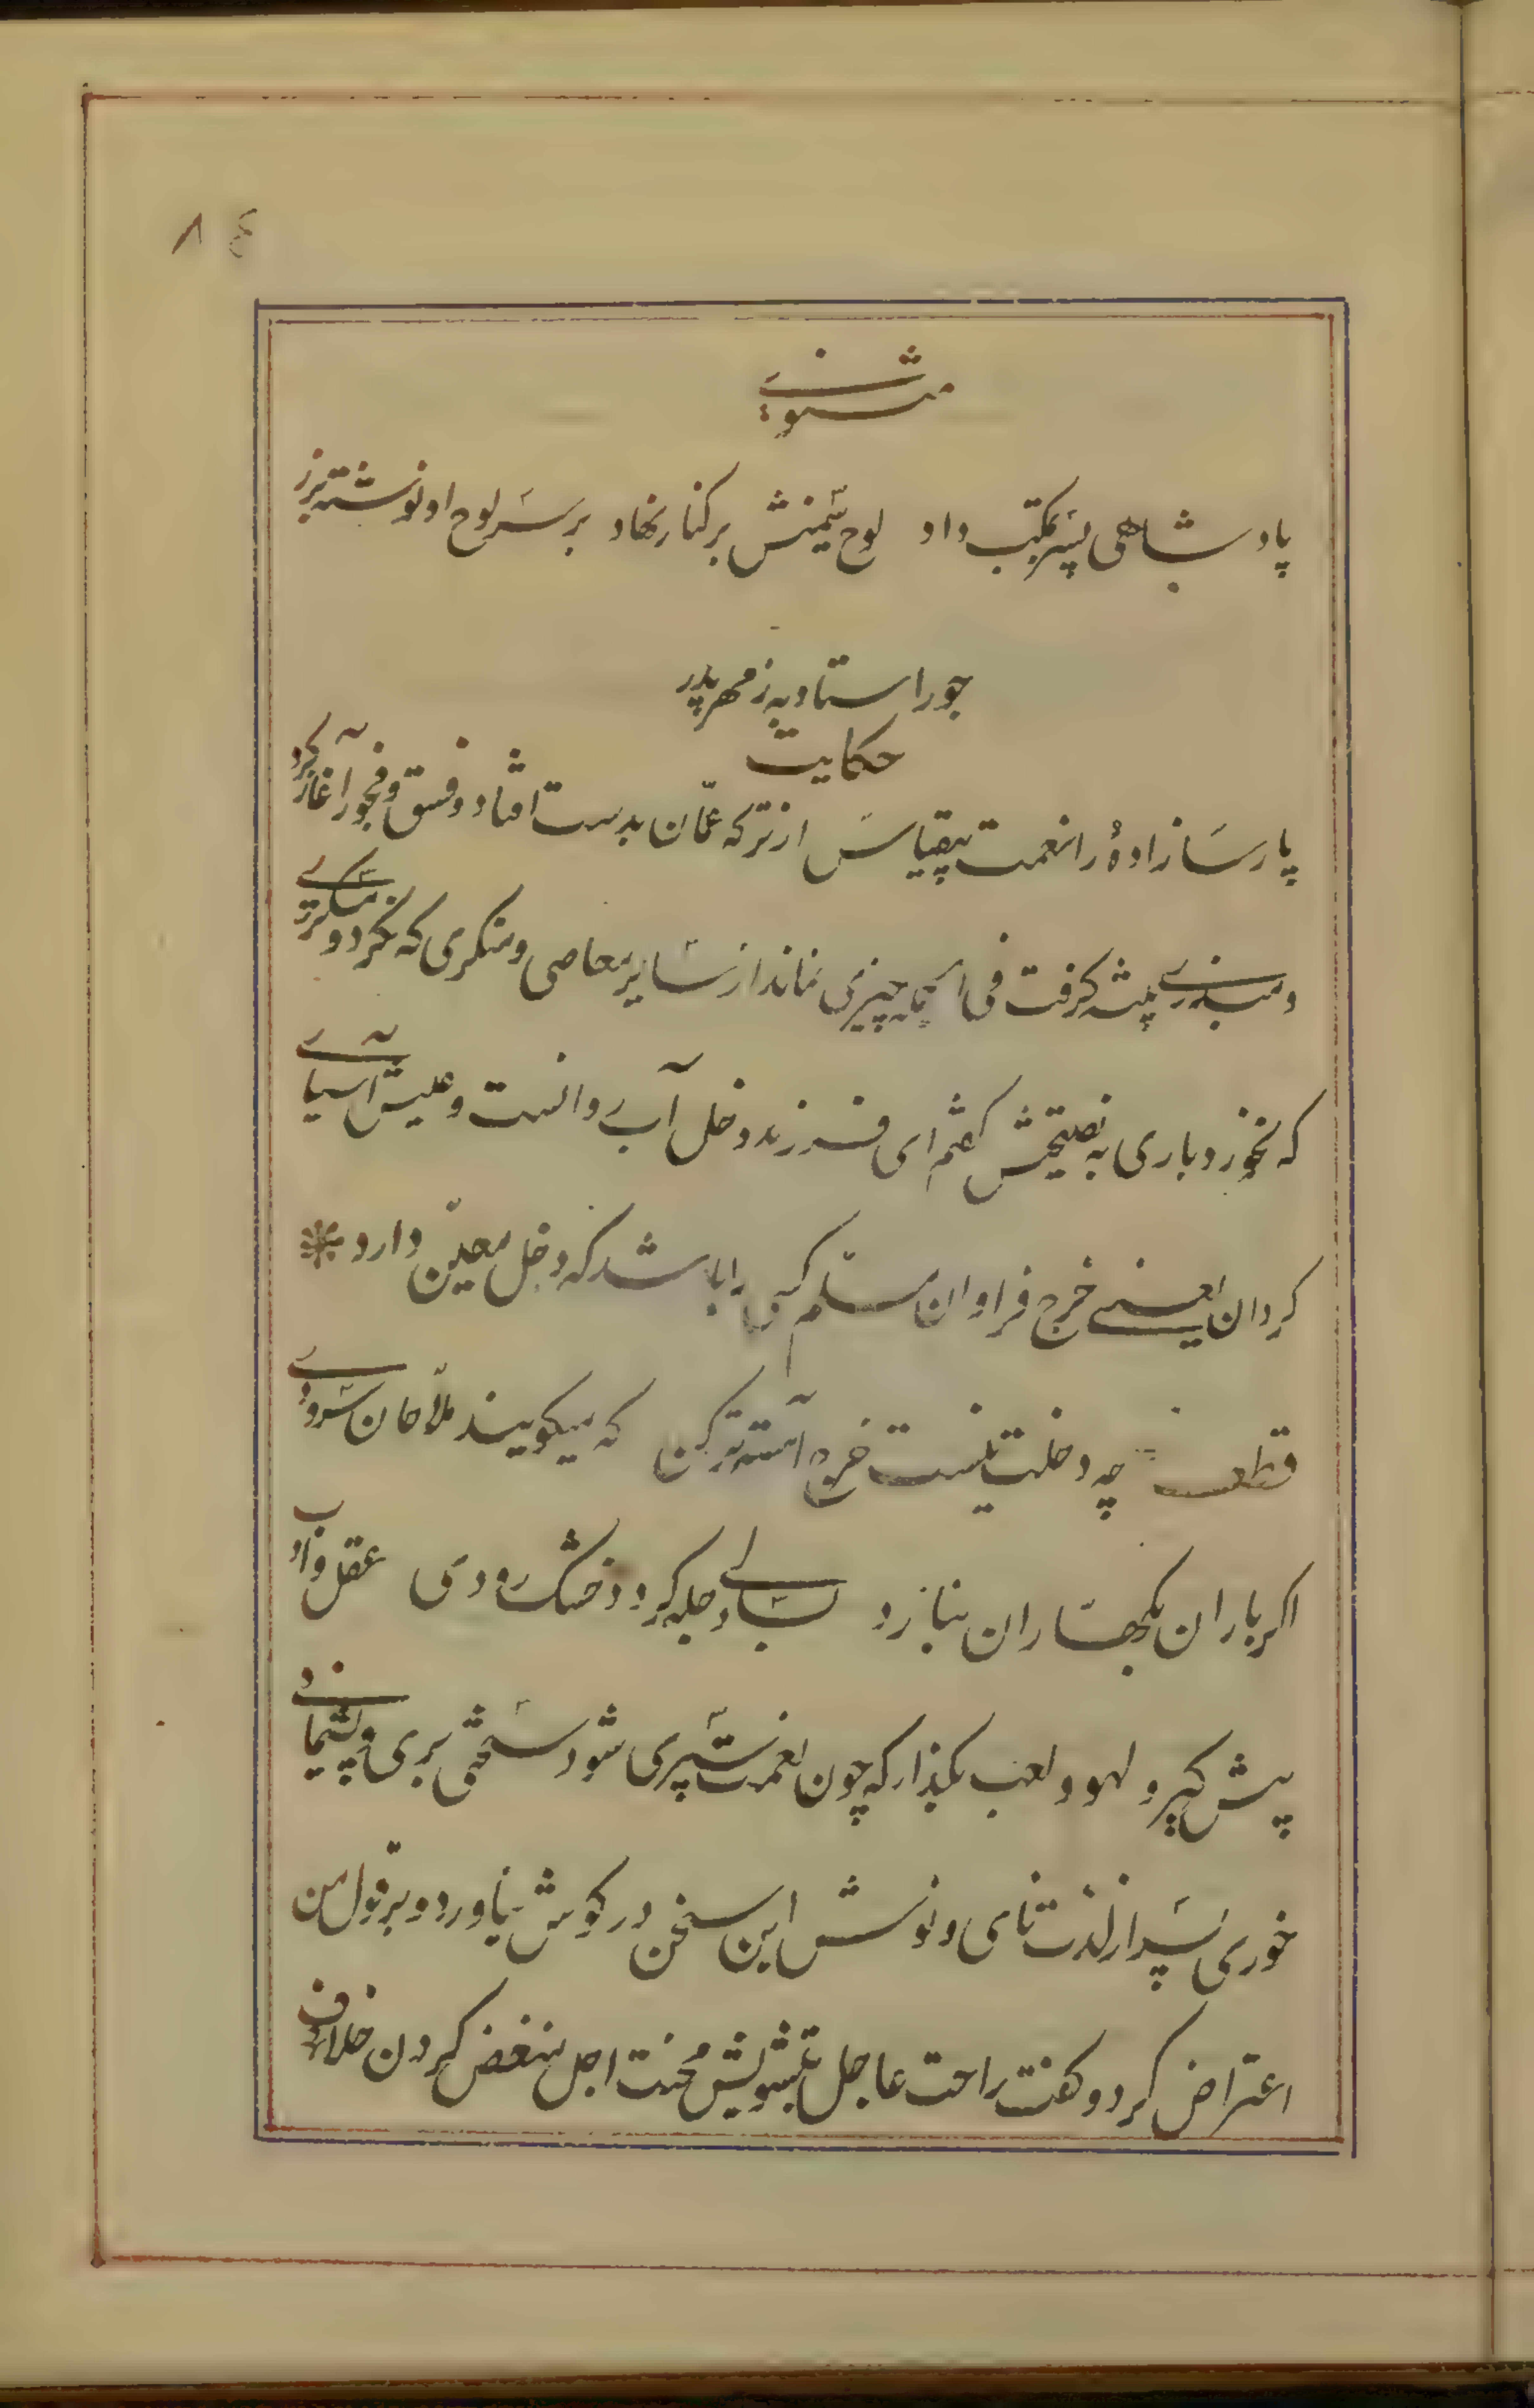 ۸۴
مثنوی
پادشاهی پسر بمکتب داد لوح سیمینش برکنار نهاد بر سر لوح او نوشته بزر
جور استاد به ز مهر پدر
حکایت
پارسازادهٔ را نعمت بیقیاس از ترکه عمّان بدست افتاد و فسق و فجور آغاز کرد
و مبذری پیشه کرفت فی الجمله چیزی نماند از سایر معاصی و منکری که نکرد و مسکری
که نخورد باری به نصیحتش کفتم ای فرزند دخل آب روانست و عیش آسیای
کردان یعنی خرج فراوان مسلّم کسی را باشد که دخل معیّن دارد *
قطعه چه دخلت نیست خرج آهسته‌تر کن که میکویند ملّاحان سرودی
اکر باران بکهساران نبارد بسالی دجله کردد خشک رودی عقل و ادب
پیش کیر و لهو و لعب بکذار که چون نعمت سپری شود سختی بری و پشیمانی
خوری پسر از لذت نای و نوش این سخن در کوش نیاورد و بر قول من
اعتراض کرد و کفت راحت عاجل بتشویش محنت اجل منغض کردن خلاف